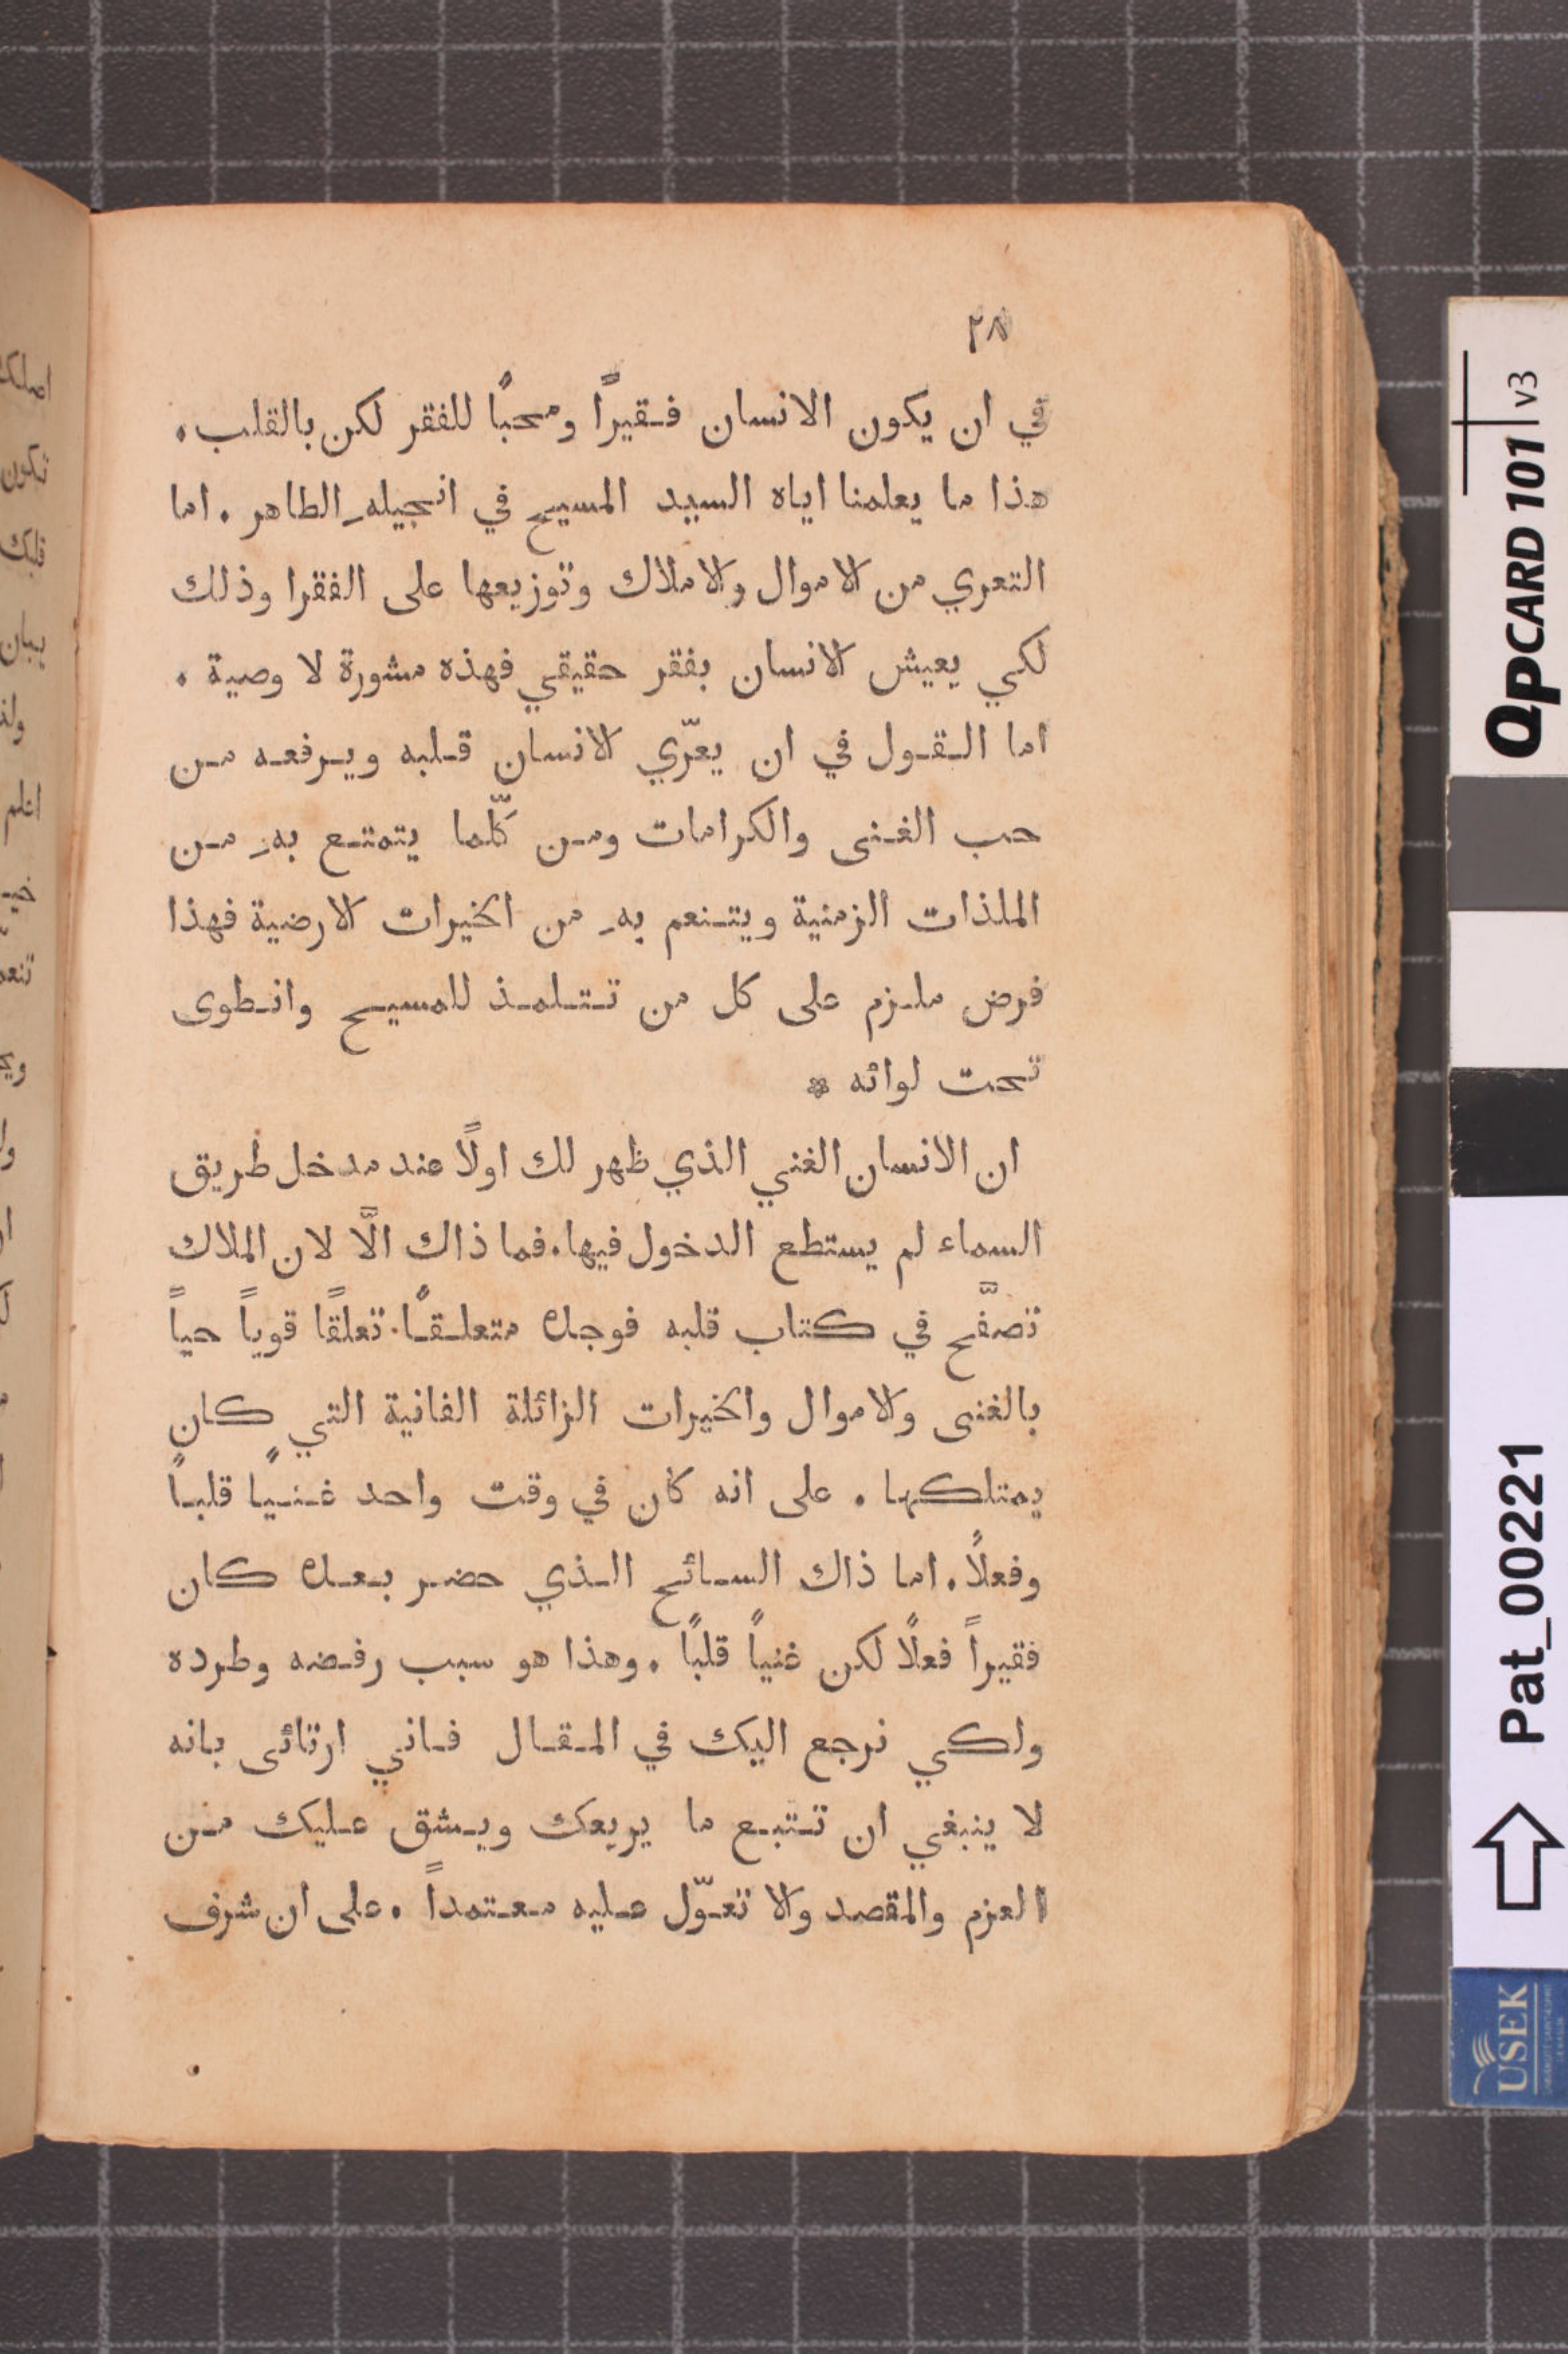 ٢٨
في ان يكون الانسان فقيراً ومحبًا للفقر لكن بالقلب.
هذا ما يعلمنا اياه السيد المسيح في انجيلهِ الطاهر. اما
التعري من الاموال والاملاك وتوزيعها على الفقرا وذلك
لكي يعيش الانسان بفقر حقيقي فهذه مشورة لا وصية.
اما القول في ان يعرّي الانسان قلبه ويرفعه من
حب الغنى والكرامات ومن كلّما يتمتع بهِ من
الملذات الزمنية ويتنعم بهِ من الخيرات الارضية فهذا
فرض ملزم على كل من تتلمذ للمسيح وانطوى
تحت لوائه *
ان الانسان الغني الذي ظهر لك اولًا عند مدخل طريق
السماء لم يستطع الدخول فيها. فما ذاك الَّا لان الملاك
تصفَّح في كتاب قلبه فوجده متعلقًا. تعلقًا قوياً حياً
بالغنى والاموال والخيرات الزائلة الفانية التي كان
يمتلكها. على انه كان في وقت واحد غنيًا قلباً
وفعلًا. اما ذاك السائح الذي حضر بعده كان
فقيراً فعلًا لكن غنياً قلبًا. وهذا هو سبب رفضه وطرده
ولكي نرجع اليك في المقال فاني ارتائى بانه
لا ينبغي ان تتبع ما يريعك ويشق عليك من
العزم والمقصد ولا تعوّل عليه معتمداً. على ان شرف
اصلك
تكون
قلبك
تنعم
QPCARD 101 v3
Pat_00221
USEK